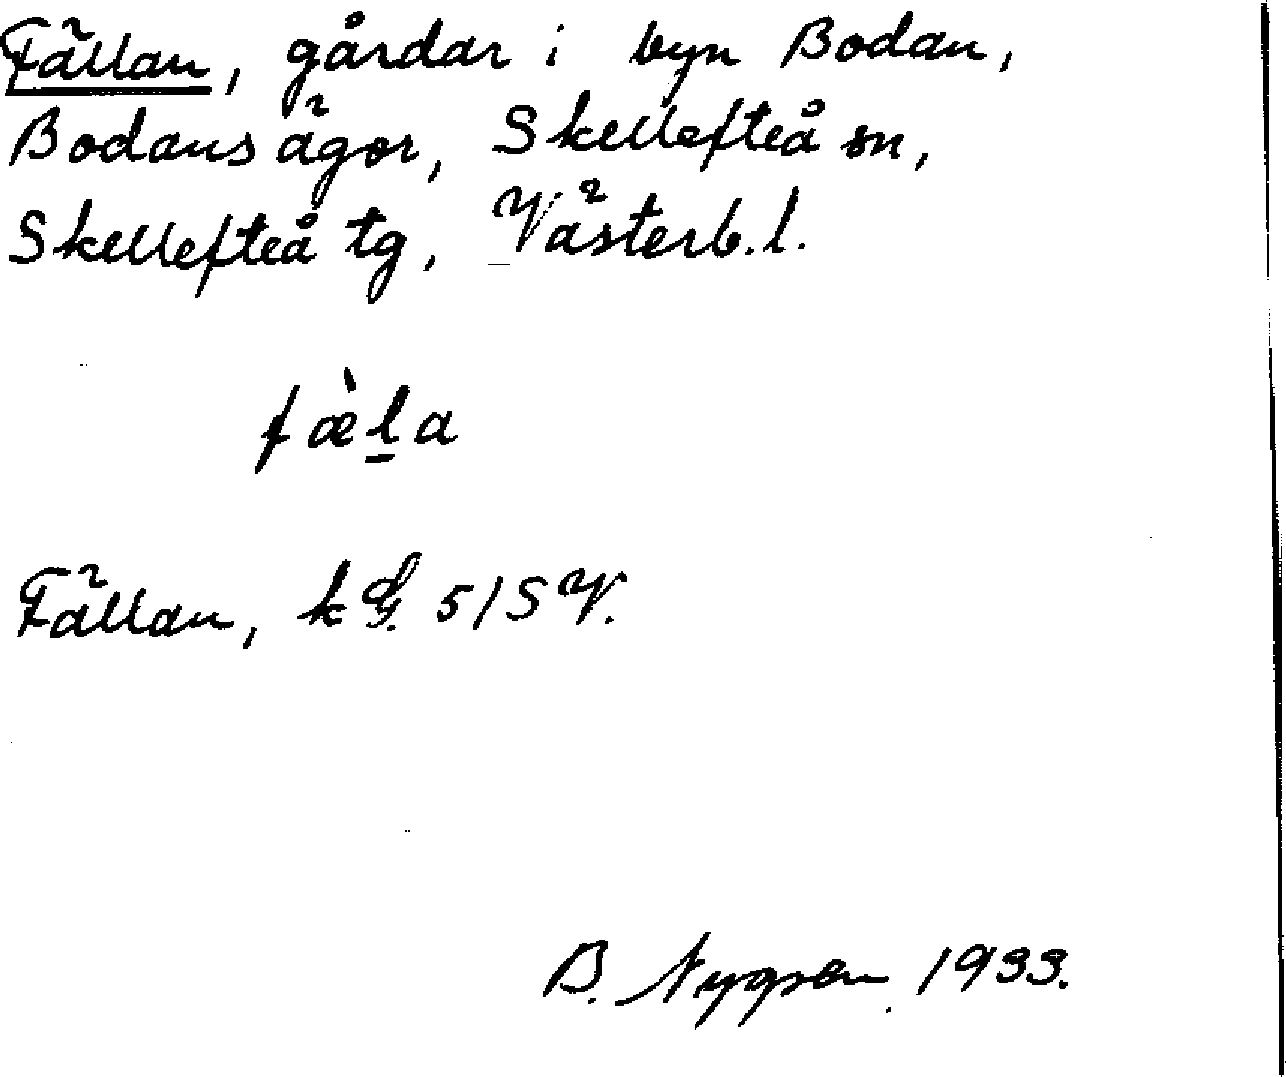 Fällan, gårdar i byn Bodan,
Bodans ägor, Skellefteå sn,
Skellefteå tg, Västerb. l.
fæ̀l̲a
Fällan, k G. 5/SV.
B. Nygren 1933.